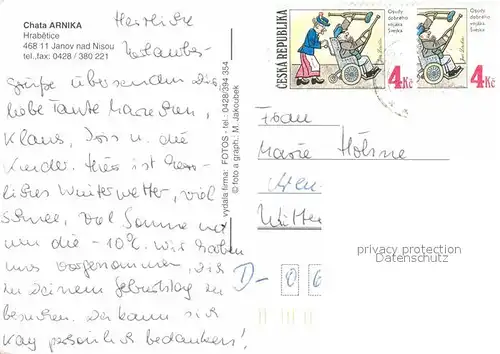 Chata ARNIKA
Hrabětice
468 11 Janov nad Nisou
tel.,fax: 0428 / 380 221
Herzliche
Urlaubs-
grüße übersenden Dir
liebe Tante Mariechen,
Klaus, u. die
Kinder. Hier ist herr-
liches Winterwetter, viel
Schnee, viel Sonne
um die -10°C. Wir haben
uns vorgenommen, Dich
zu Deinem Geburtstag zu
besuchen. Da kann sich
Kay persönlich bedanken!
vydala firma: FOTOS - tel.: 0428/394 354
© foto a graph.: M. Jakoubek
ČESKÁ REPUBLIKA
4Kč
Osudy
dobrého
vojáka
Švejka
4Kč
Frau
Marie
D-
privacy protection
Datenschutz